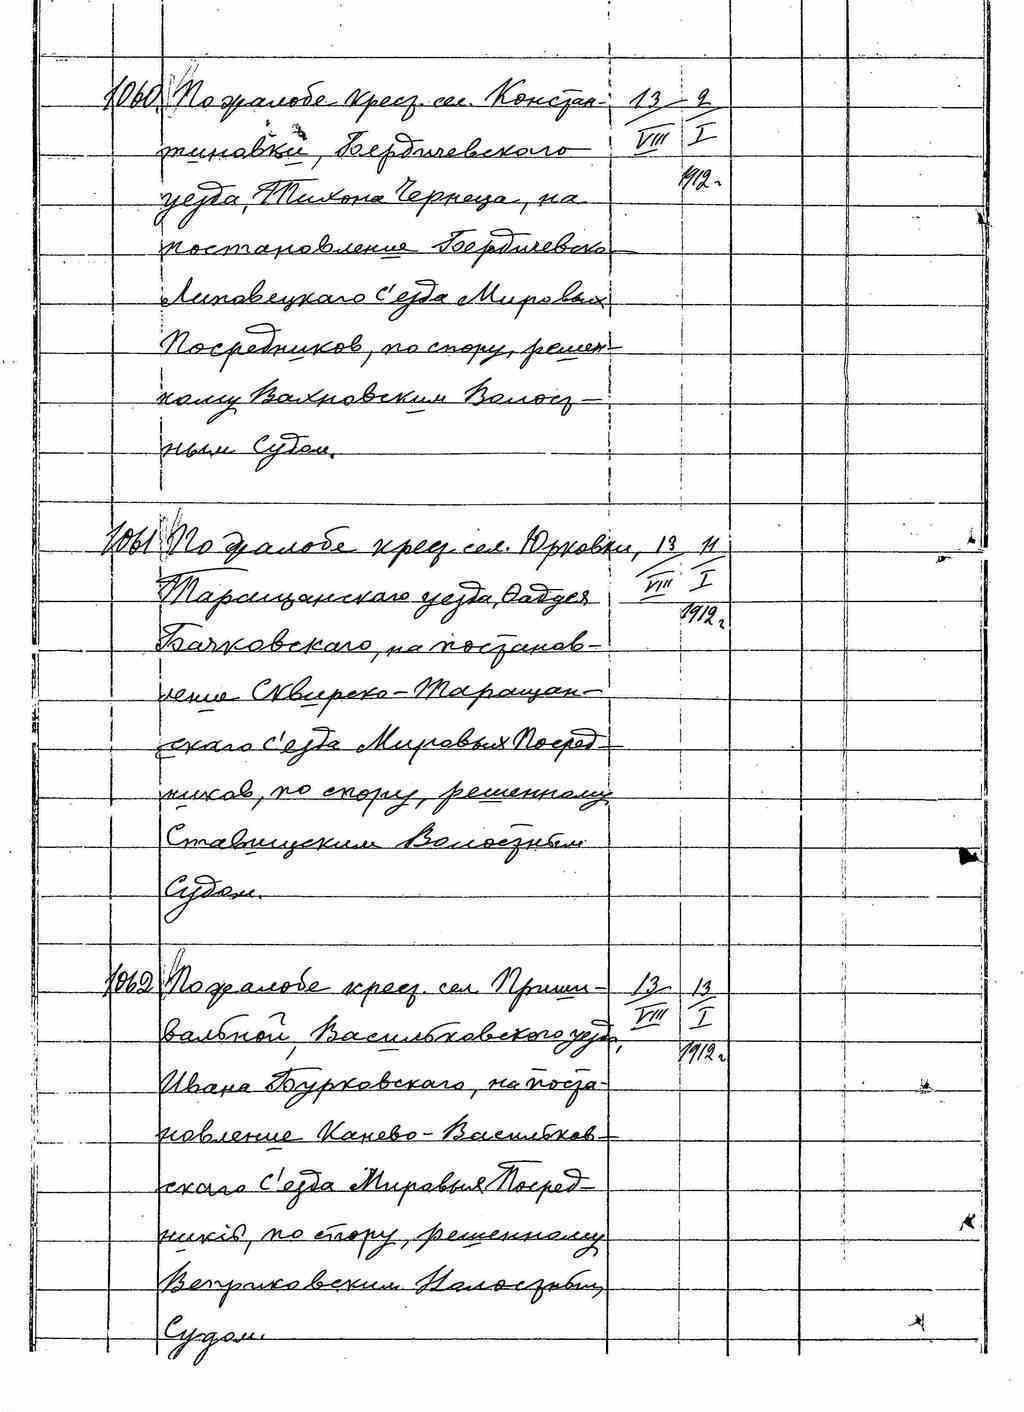 1060. По жалобе крест. сел. Констан- 13 2
тиновки, Бердичевского VIII I
уезда, Тихона Чернеца, на 1912 г
постановление Бердичевско-
Липовецкаго с'езда Мировых
Посредников, по спору, решен-
ному Вахновским Волост-
ным Судом.
1061 По жалобе крест. сел. Юрковки, 13 11
Таращанскаго уезда, Фаддея VIII I
Бачковскаго, на постанов- 1912 г
ление Сквирско-Таращан-
скаго с'езда Мировых Посред-
ников, по спору, решенному
Ставищским Волостным
Судом.
1062 По жалобе крест. сел. Приши- 13 13
вальной, Васильковского уезда, VIII I
Ивана Бурковскаго, на поста- 1912 г
новление Канево-Васильков-
скаго с'езда Мировых Посред-
ників, по спору, решенному
Веприковским Волостным
Судом.